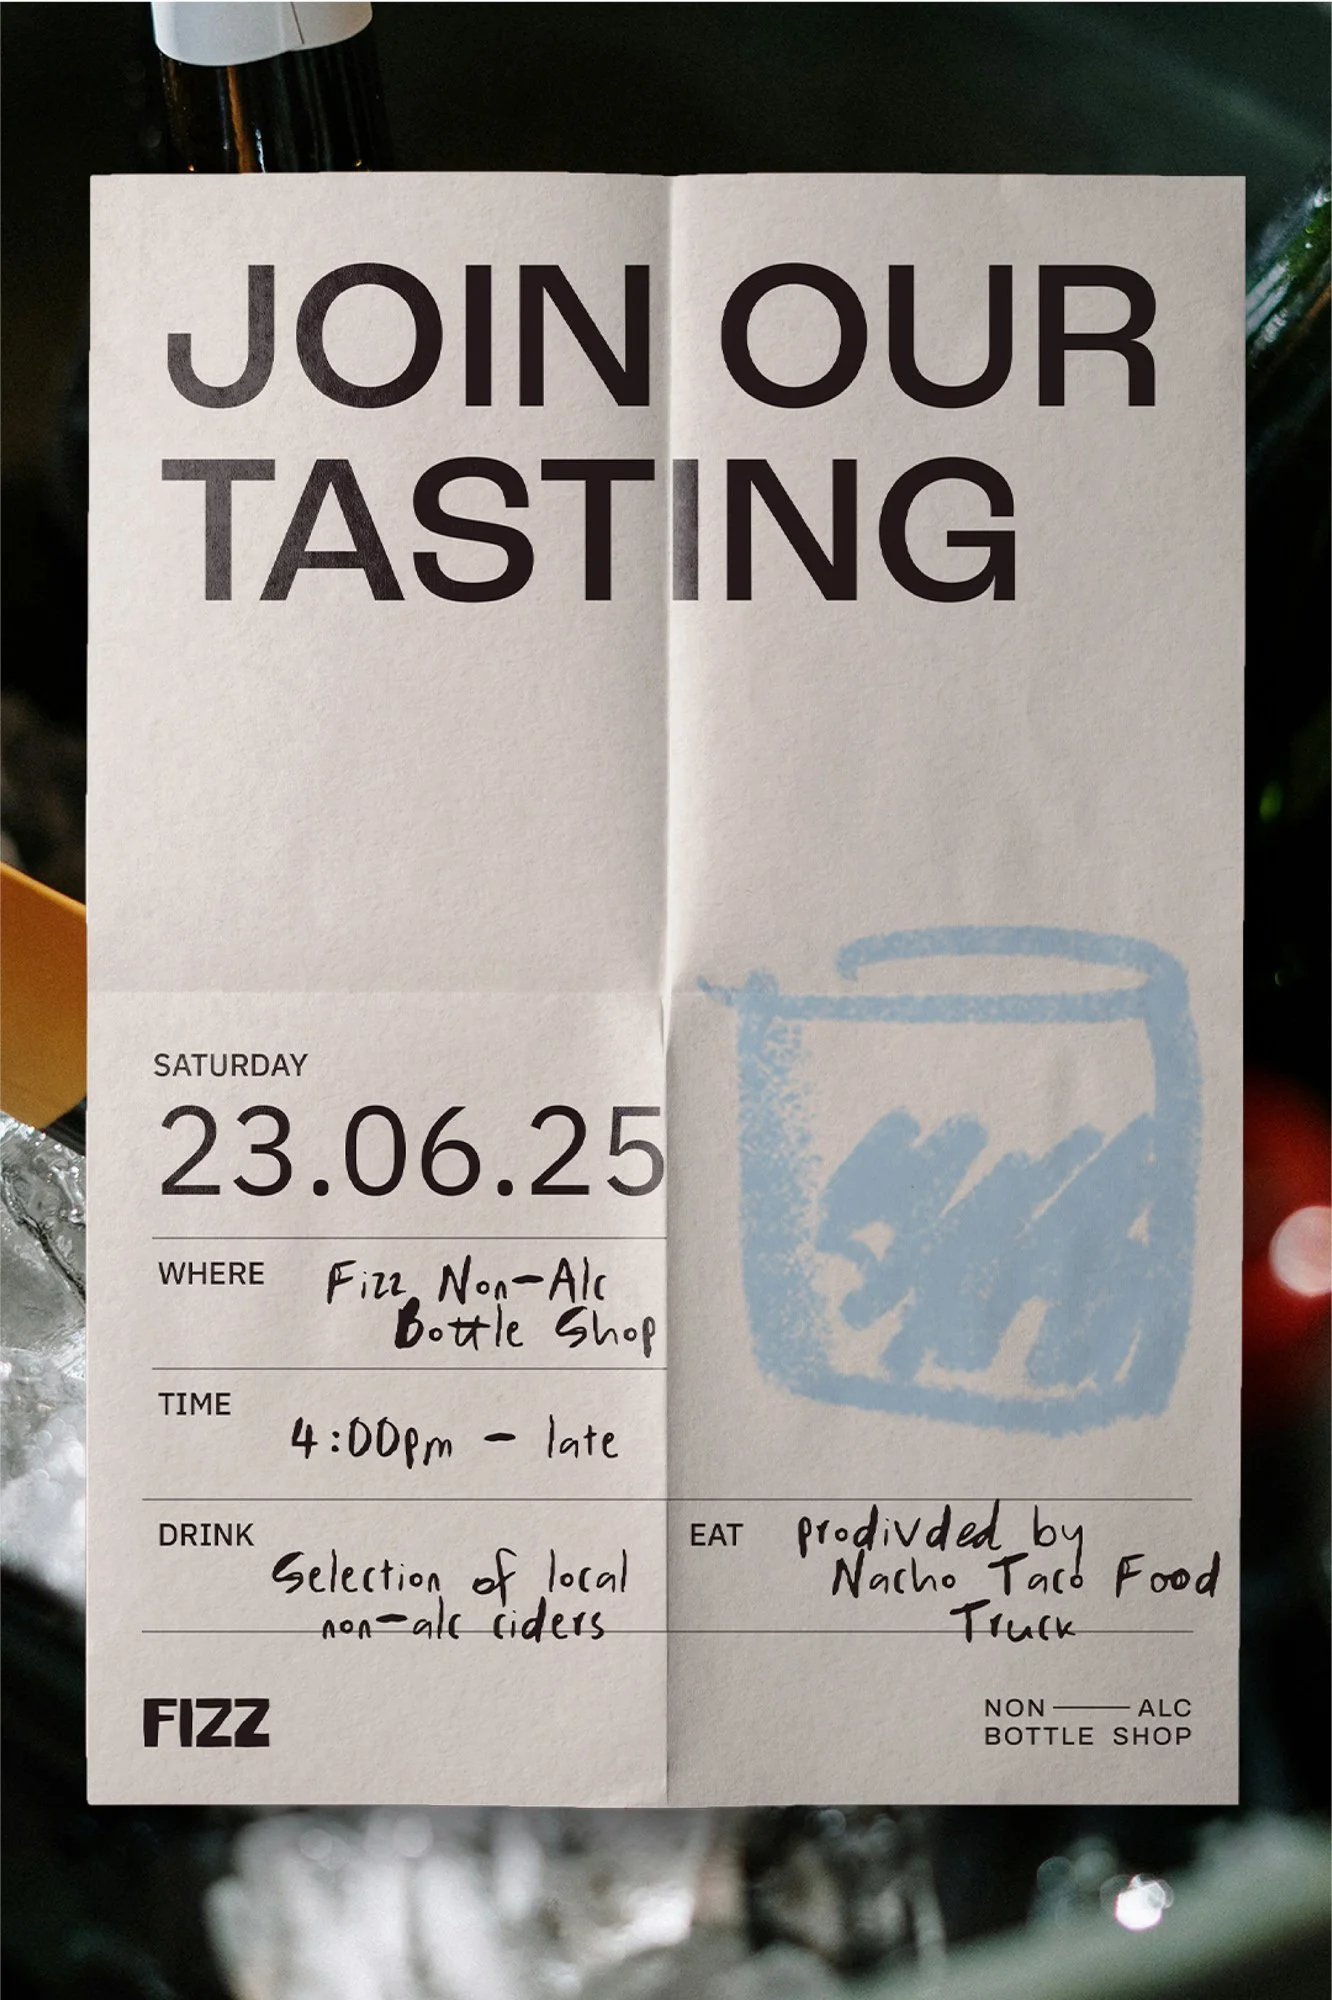 JOIN OUR
TASTING
SATURDAY
23.06.25
WHERE Fizz Non-Alc
Bottle Shop
TIME 4:00pm - late
DRINK Selection of local
non-alc ciders
EAT prodivded by
Nacho Taco Food
Truck
FIZZ
NON — ALC
BOTTLE SHOP